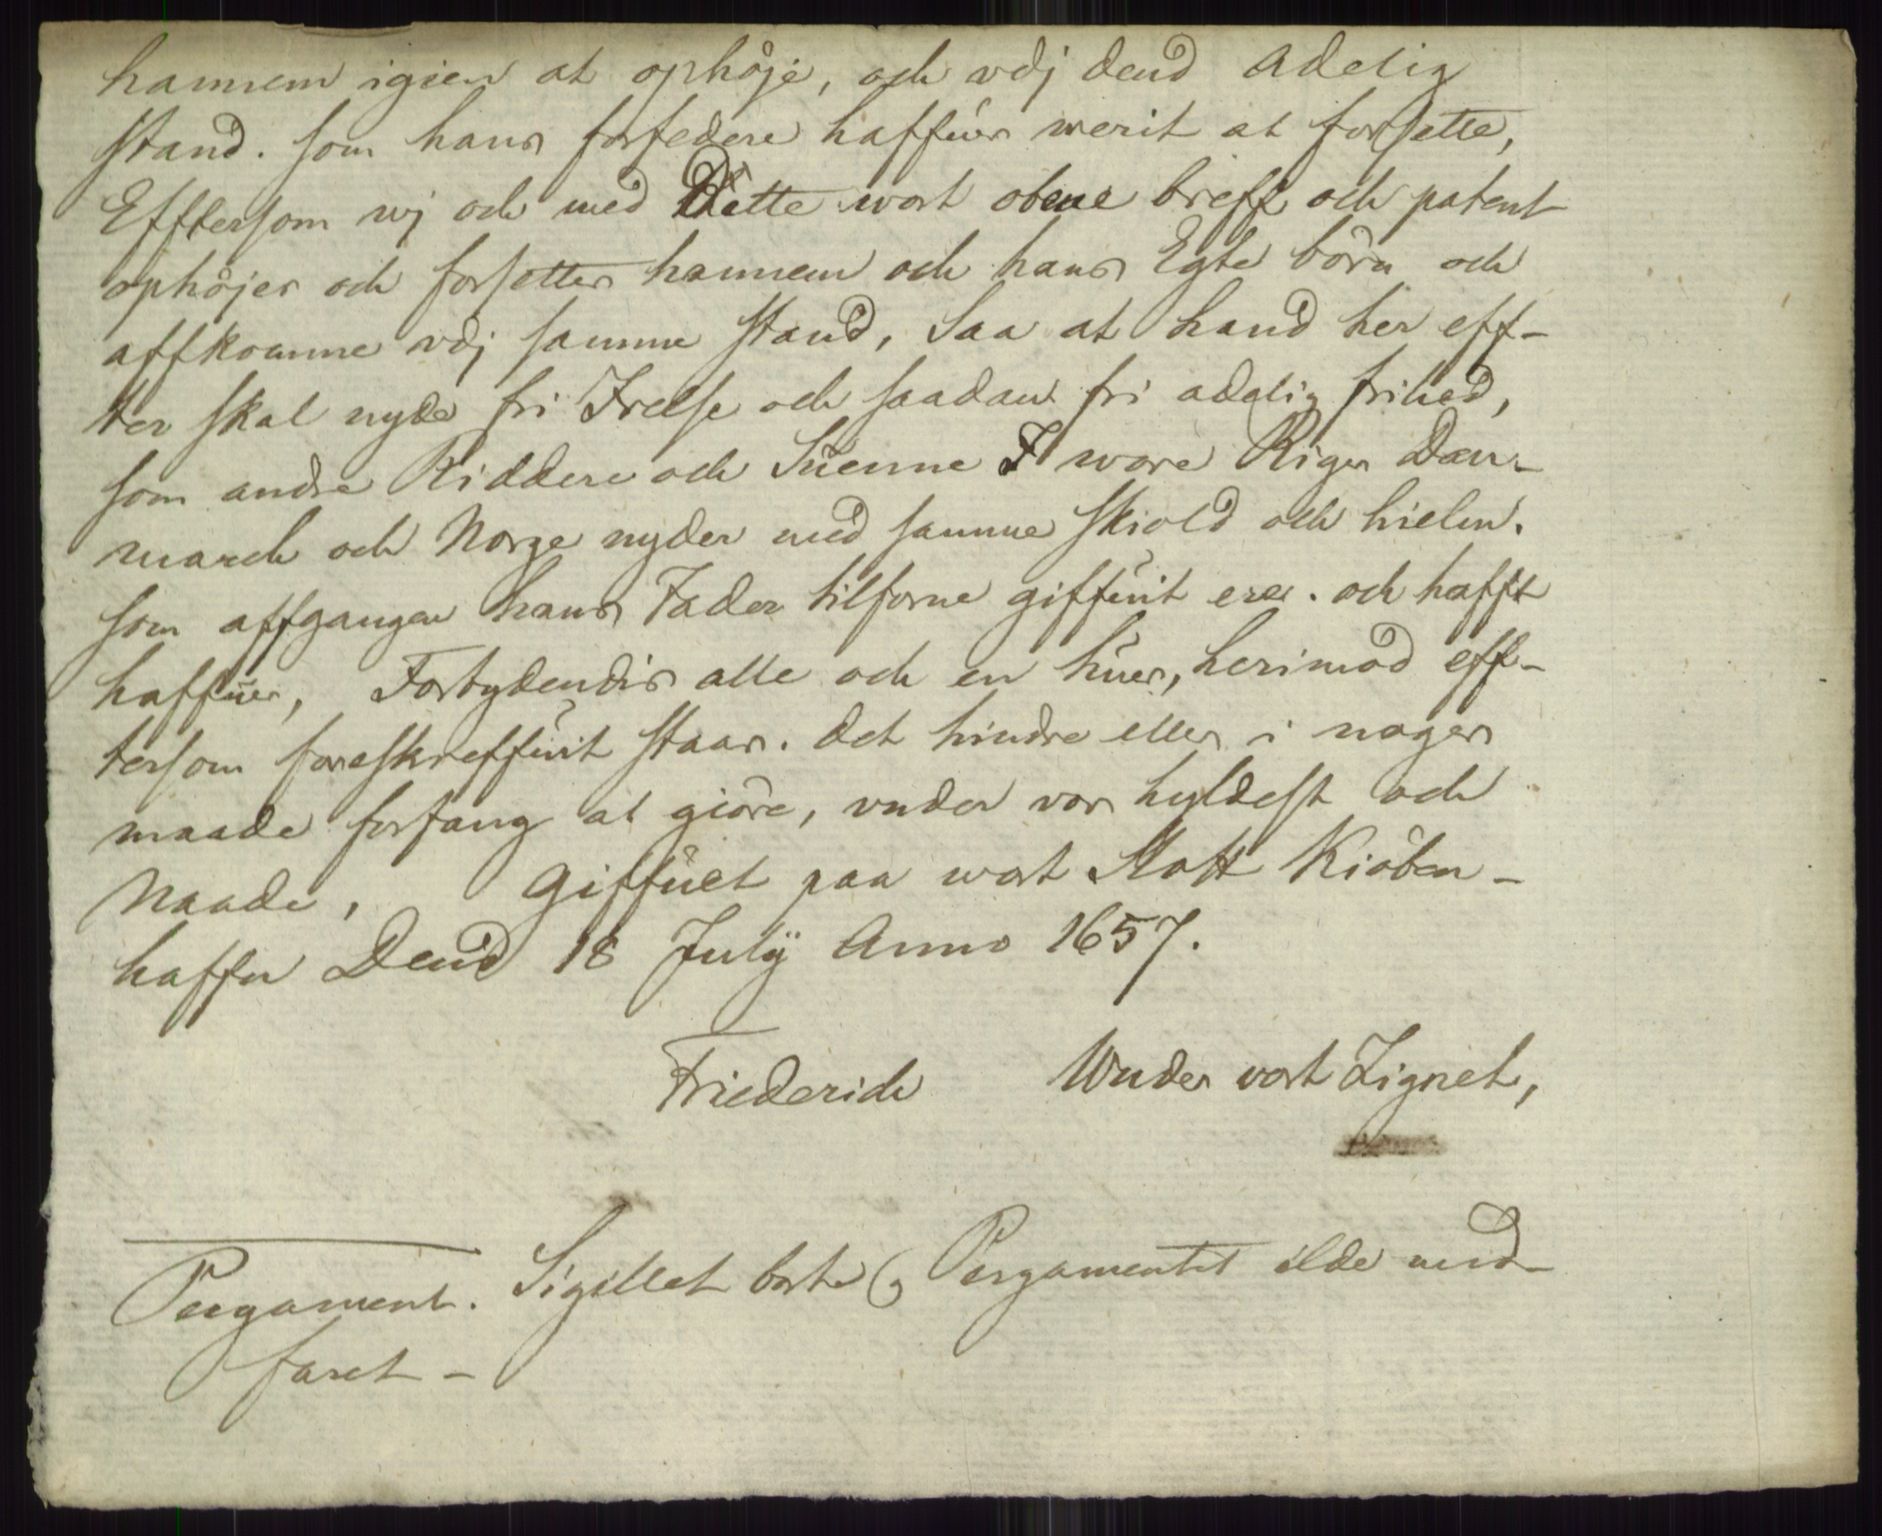 hannem igien at ophøje, och vdj dend Adelig
stand. som hans forfedere haffuer werit at forsette,
Efftersom wj och med Dette wort obene breff och patent
ophøjer och forsetter hannem och hans Egte børn och
affkomme vdj samme stand, Saa at hand her eff-
ter skal nyde fri Frelse och saadan fri adelig frihed,
som andre Riddere och Suenne I wore Riger Dan-
march och Norge nyder med samme Skiold och hielm.
som affgangen hans Fader tilforne giffuit er. och hafft
haffuer, Forbydendis alle och en huer, herimod eff-
tersom foreskreffuit staar. det hindre eller i noger
maade forfang at giøre, vnder vor hyldest och
Naade, Giffuet paa wort Slott Kiøben-
haffn Dend 18 Julij Anno 1657.
Friederich Wnder vort Zignet,
Pergament. Sigillet borte og Pergamentet ilde med-
faret -